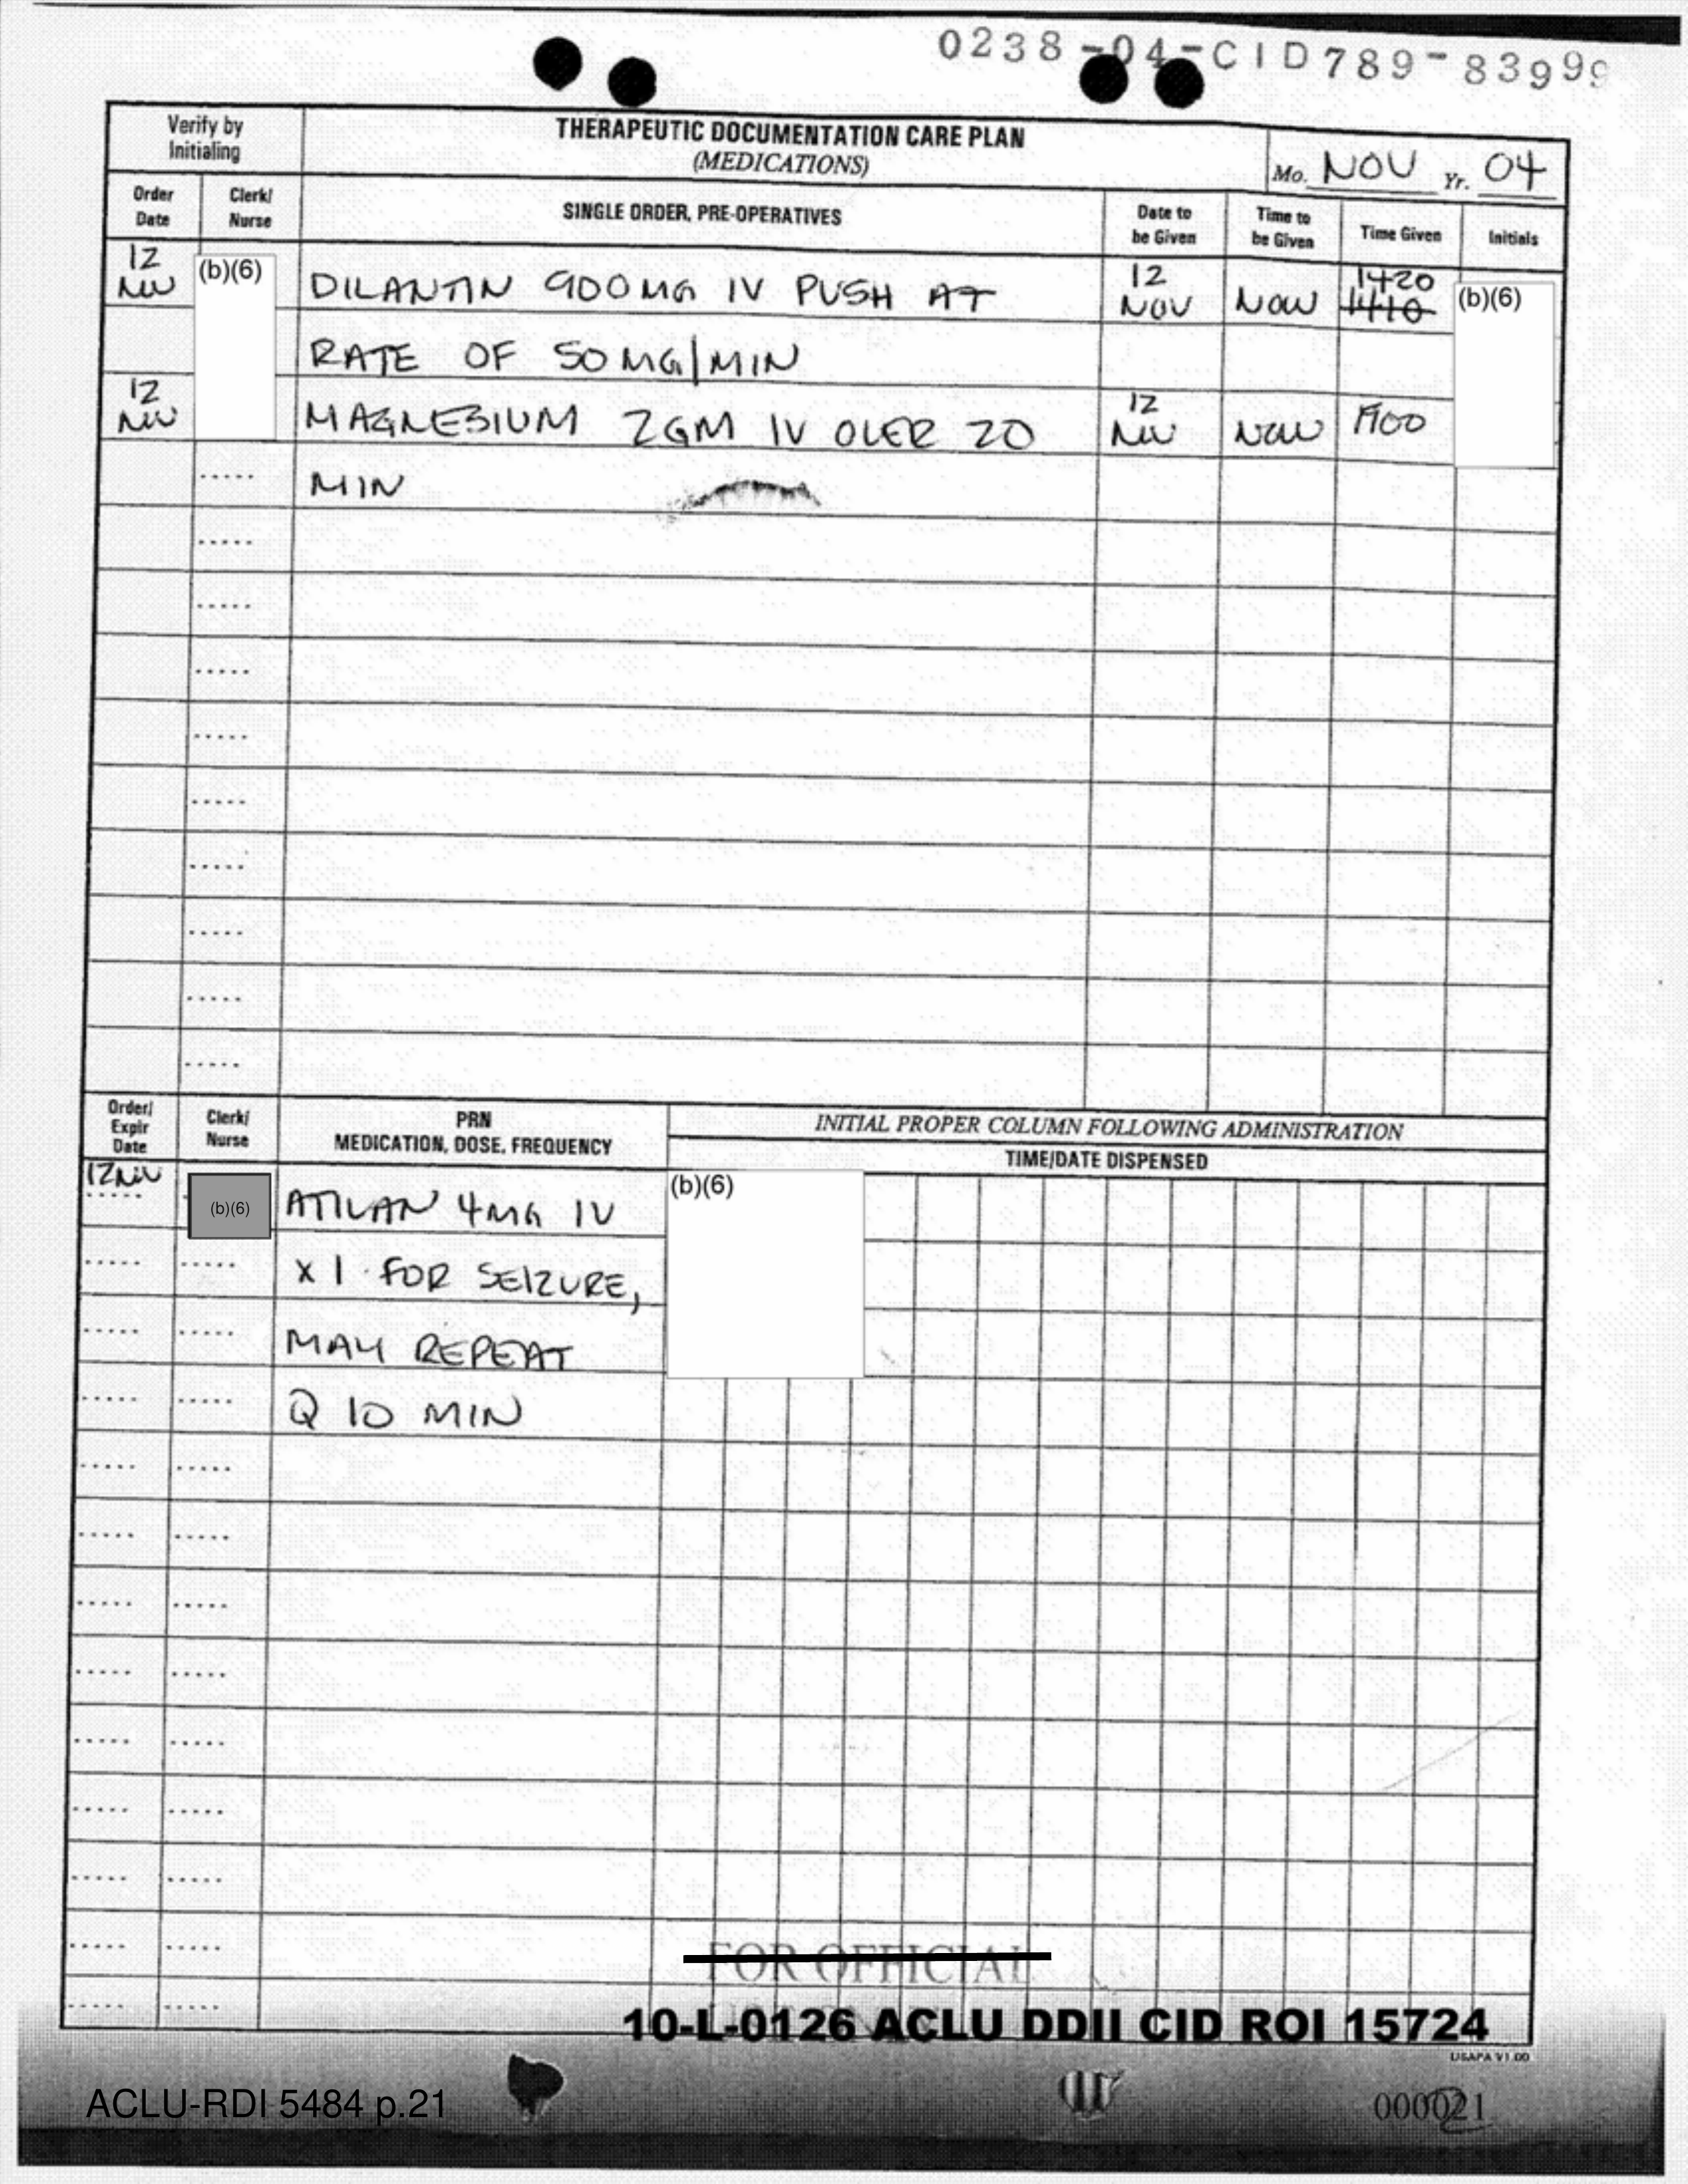 0238-04-CID789-83999
Verify by
Initialing
THERAPEUTIC DOCUMENTATION CARE PLAN
(MEDICATIONS)
Mo. NOV Yr. 04
Order
Date
Clerk/
Nurse
SINGLE ORDER, PRE-OPERATIVES
Date to
be Given
Time to
be Given
Time Given
Initials
12 NOV (b)(6) DILANTIN 900MG IV PUSH AT 12 NOV NOW 1420 1410 (b)(6)
RATE OF 50MG/MIN
12 NOV MAGNESIUM 2GM IV OVER 20 12 NOV NOW
MIN
Order/
Expir
Date
Clerk/
Nurse
PRN
MEDICATION, DOSE, FREQUENCY
INITIAL PROPER COLUMN FOLLOWING ADMINISTRATION
TIME/DATE DISPENSED
12NOV (b)(6) ATIVAN 4MG IV (b)(6)
X 1 FOR SEIZURE,
MAY REPEAT
Q 10 MIN
FOR OFFICIAL
10-L-0126 ACLU DDII CID ROI 15724
USAPA V1.00
ACLU-RDI 5484 p.21
000021